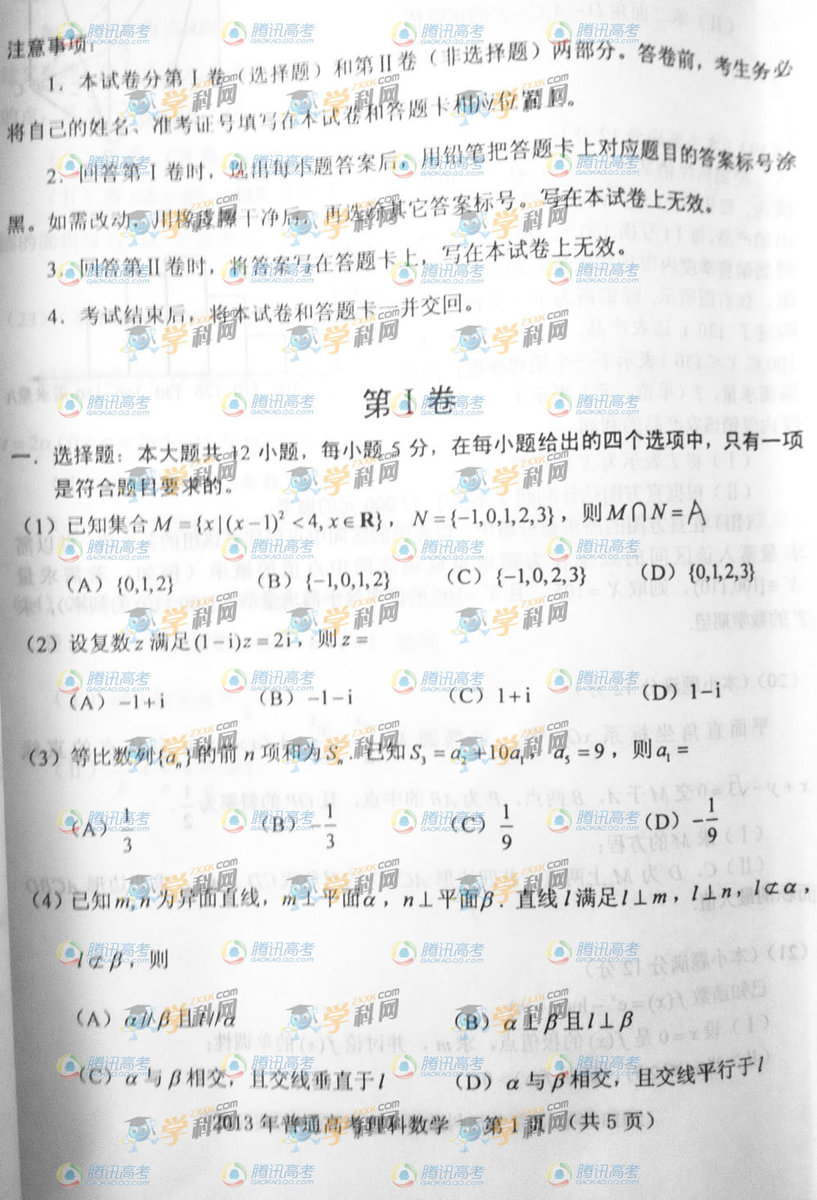 注意事项：
1．本试卷分第Ⅰ卷（选择题）和第Ⅱ卷（非选择题）两部分。答卷前，考生务必
将自己的姓名、准考证号填写在本试卷和答题卡相应位置上。
2．回答第Ⅰ卷时，选出每小题答案后，用铅笔把答题卡上对应题目的答案标号涂
黑。如需改动，用橡皮擦干净后，再选涂其它答案标号。写在本试卷上无效。
3．回答第Ⅱ卷时，将答案写在答题卡上，写在本试卷上无效。
4．考试结束后，将本试卷和答题卡一并交回。
第Ⅰ卷
一．选择题：本大题共12小题，每小题5分，在每小题给出的四个选项中，只有一项
是符合题目要求的。
（1）已知集合 M={x|(x-1)²<4, x∈R}，N={-1,0,1,2,3}，则M∩N=A
（A）{0,1,2} （B）{-1,0,1,2} （C）{-1,0,2,3} （D）{0,1,2,3}
（2）设复数z满足(1-i)z=2i，则z=
（A）-1+i （B）-1-i （C）1+i （D）1-i
（3）等比数列{aₙ}的前n项和为Sₙ．已知S₃=a₂+10a₁，a₅=9，则a₁=
（A）1/3 （B）-1/3 （C）1/9 （D）-1/9
（4）已知m,n为异面直线，m⊥平面α，n⊥平面β．直线l满足l⊥m，l⊥n，l⊄α，
l⊄β，则
（A）α//β且l//α （B）α⊥β且l⊥β
（C）α与β相交，且交线垂直于l （D）α与β相交，且交线平行于l
2013年普通高考理科数学 第1页 （共5页）
腾讯高考
GAOKAO.QQ.COM
学科网
ZXXK.com